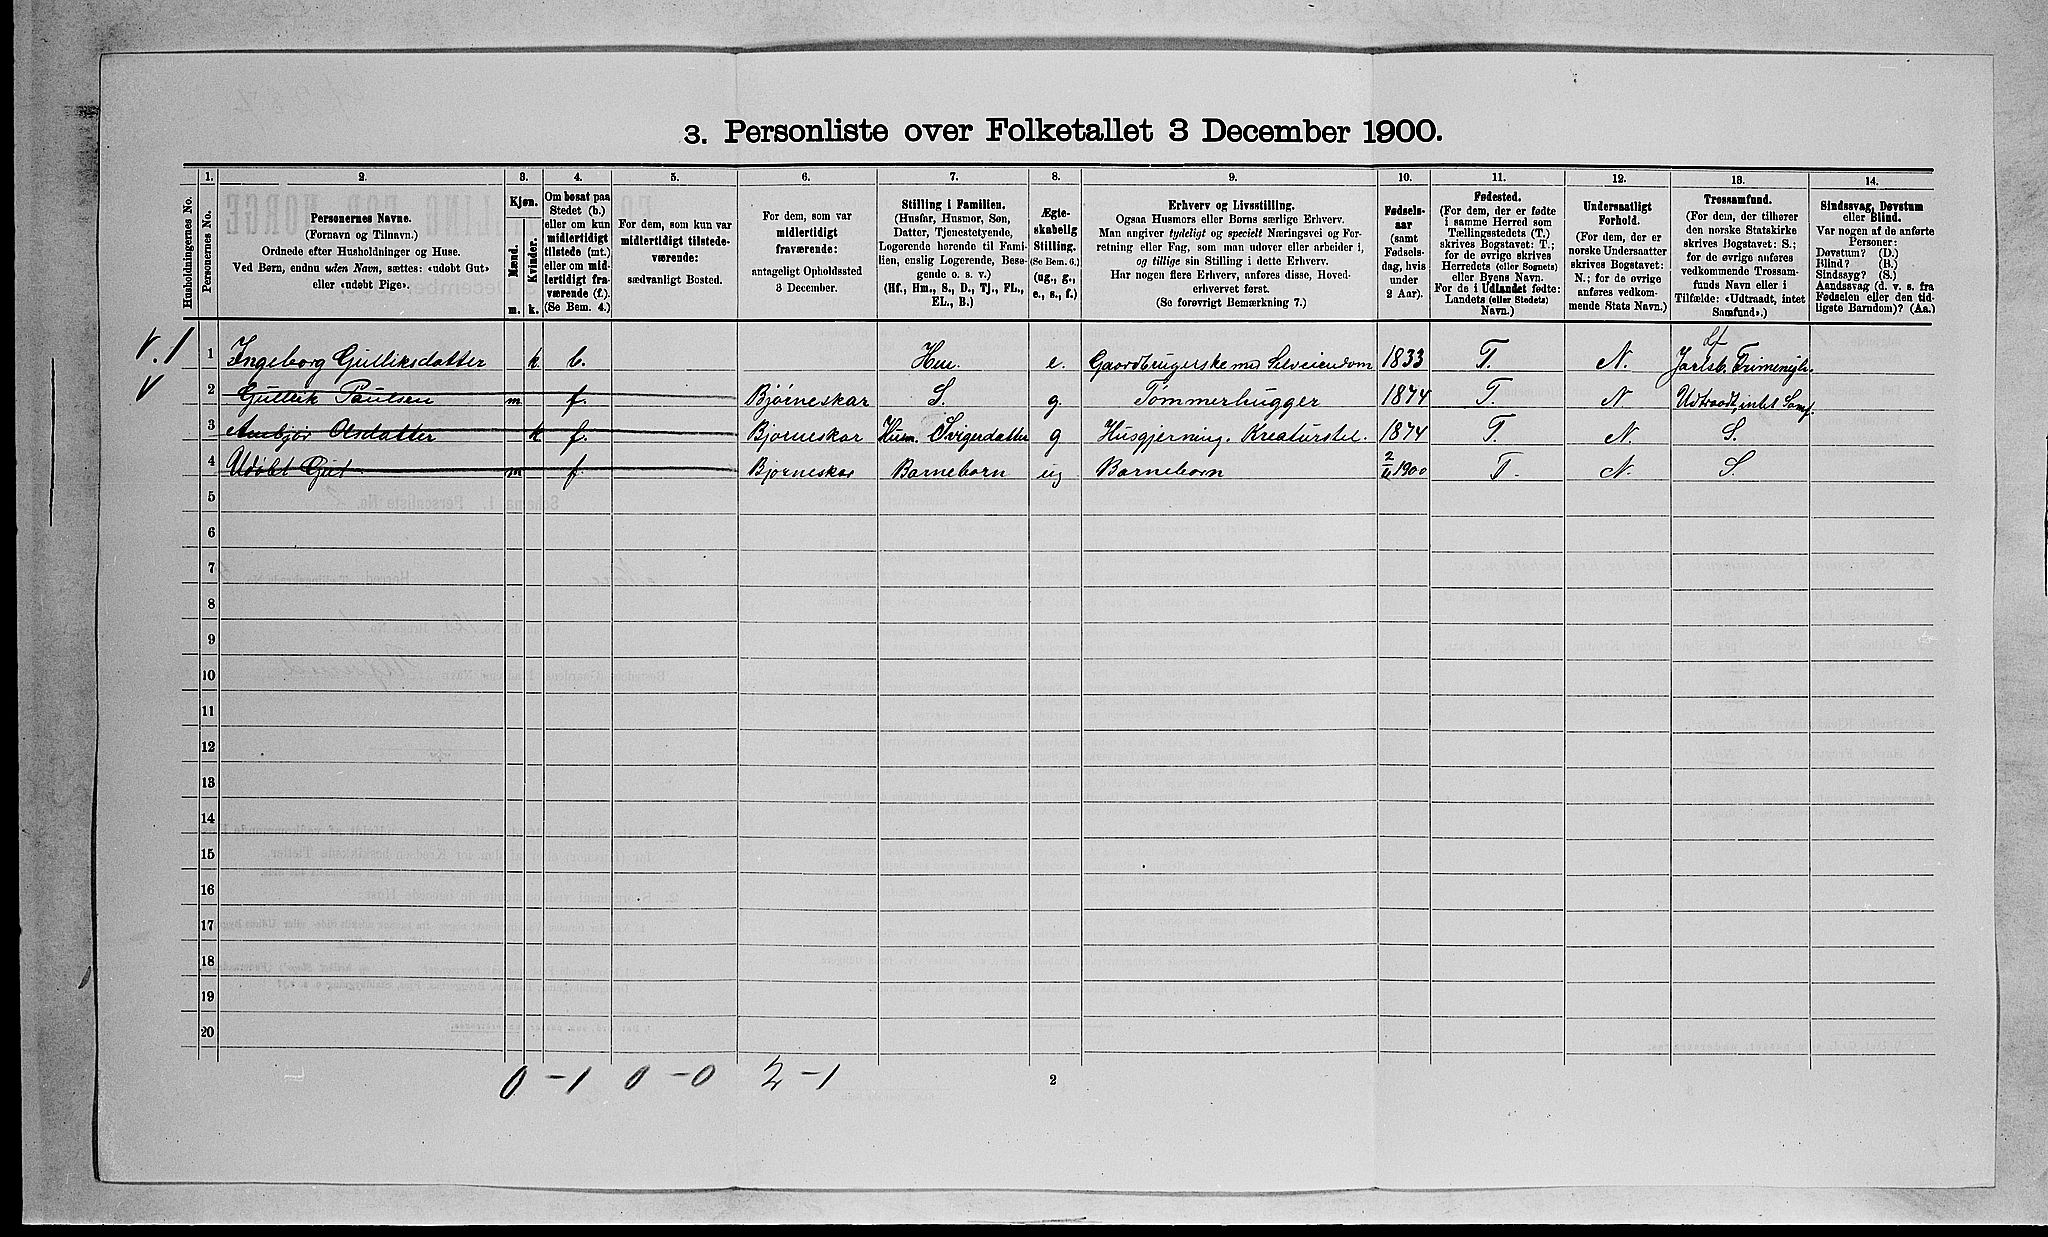 3. Personliste over Folketallet 3 December 1900.
Husholdningernes No.
1. Personernes No.
2. Personernes Navne. (Fornavn og Tilnavn.) Ordnede efter Husholdninger og Huse. Ved Børn, endnu uden Navn, sættes: «udøbt Gut» eller «udøbt Pige».
3. Kjøn. Mænd. m. Kvinder. k.
4. Om bosat paa Stedet (b.) eller om kun midlertidigt tilstede (mt.) eller om midlertidigt fraværende (f.). (Se Bem. 4.)
5. For dem, som kun var midlertidigt tilstedeværende: sædvanligt Bosted.
6. For dem, som var midlertidigt fraværende: antageligt Opholdssted 3 December.
7. Stilling i Familien. (Husfar, Husmor, Søn, Datter, Tjenestetyende, Logerende hørende til Familien, enslig Logerende, Besøgende o. s. v.) (Hf., Hm., S., D., Tj., FL., EL., B.)
8. Ægteskabelig Stilling. (Se Bem. 6.) (ug., g., e., s., f.)
9. Erhverv og Livsstilling. Ogsaa Husmors eller Børns særlige Erhverv. Man angiver tydeligt og specielt Næringsvei og Forretning eller Fag, som man udover eller arbeider i, og tillige sin Stilling i dette Erhverv. Har nogen flere Erhverv, anføres disse, Hovederhvervet først. (Se forøvrigt Bemærkning 7.)
10. Fødselsaar (samt Fødselsdag, hvis under 2 Aar).
11. Fødested. (For dem, der er fødte i samme Herred som Tællingsstedets (T.) skrives Bogstavet: T.; for de øvrige skrives Herredets (eller Sognets) eller Byens Navn. For de i Udlandet fødte: Landets (eller Stedets) Navn.)
12. Undersaatligt Forhold. (For dem, der er norske Undersaatter skrives Bogstavet: N.; for de øvrige anføres vedkommende Stats Navn.)
13. Trossamfund. (For dem, der tilhører den norske Statskirke skrives Bogstavet: S.; for de øvrige anføres vedkommende Trossamfunds Navn eller i Tilfælde: «Udtraadt, intet Samfund».)
14. Sindssvag, Døvstum eller Blind. Var nogen af de anførte Personer: Døvstum? (D.) Blind? (B.) Sindssyg? (S.) Aandssvag (d. v. s. fra Fødselen eller den tidligste Barndom)? (Aa.)
V. 1 1 Ingeborg Gulliksdatter k. b. Hm. e. Gaardbrugerske med Selveiendom 1833 T. N. Jarlsb. Frimenigh.
V 2 Gullik Paulsen m f. Bjørneskar S. g. Tømmerhugger 1874 T. N Udtraadt, intet Samf.
3 Ambjør Olsdatter k f. Bjorneskar Husm. Svigerdatter g Husgjerning. Kreaturstel. 1874 T. N. S.
4 Udøbt Gut m f. Bjorneskar Barnebarn ug Barnebarn 1900 T. N. S.
5
6
7
8
9
10
11
12
13
14
15
16
17
18
19
20
0 - 1 0 - 0 2 - 1
2